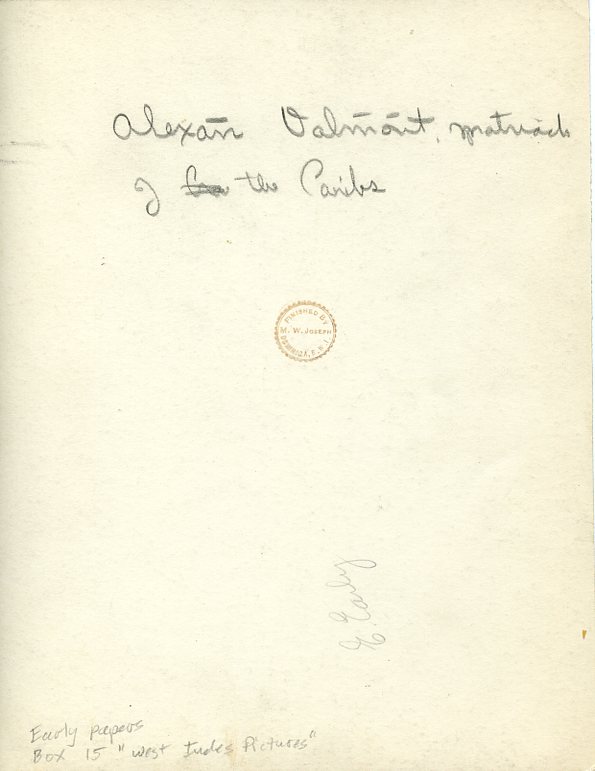 Alexān Valmōnt, matriach
of the Caribs
FINISHED BY
M. W. JOSEPH
DOMINICA, B.W.I.
E. Early
Early papers
Box 15 "West Indes Pictures"